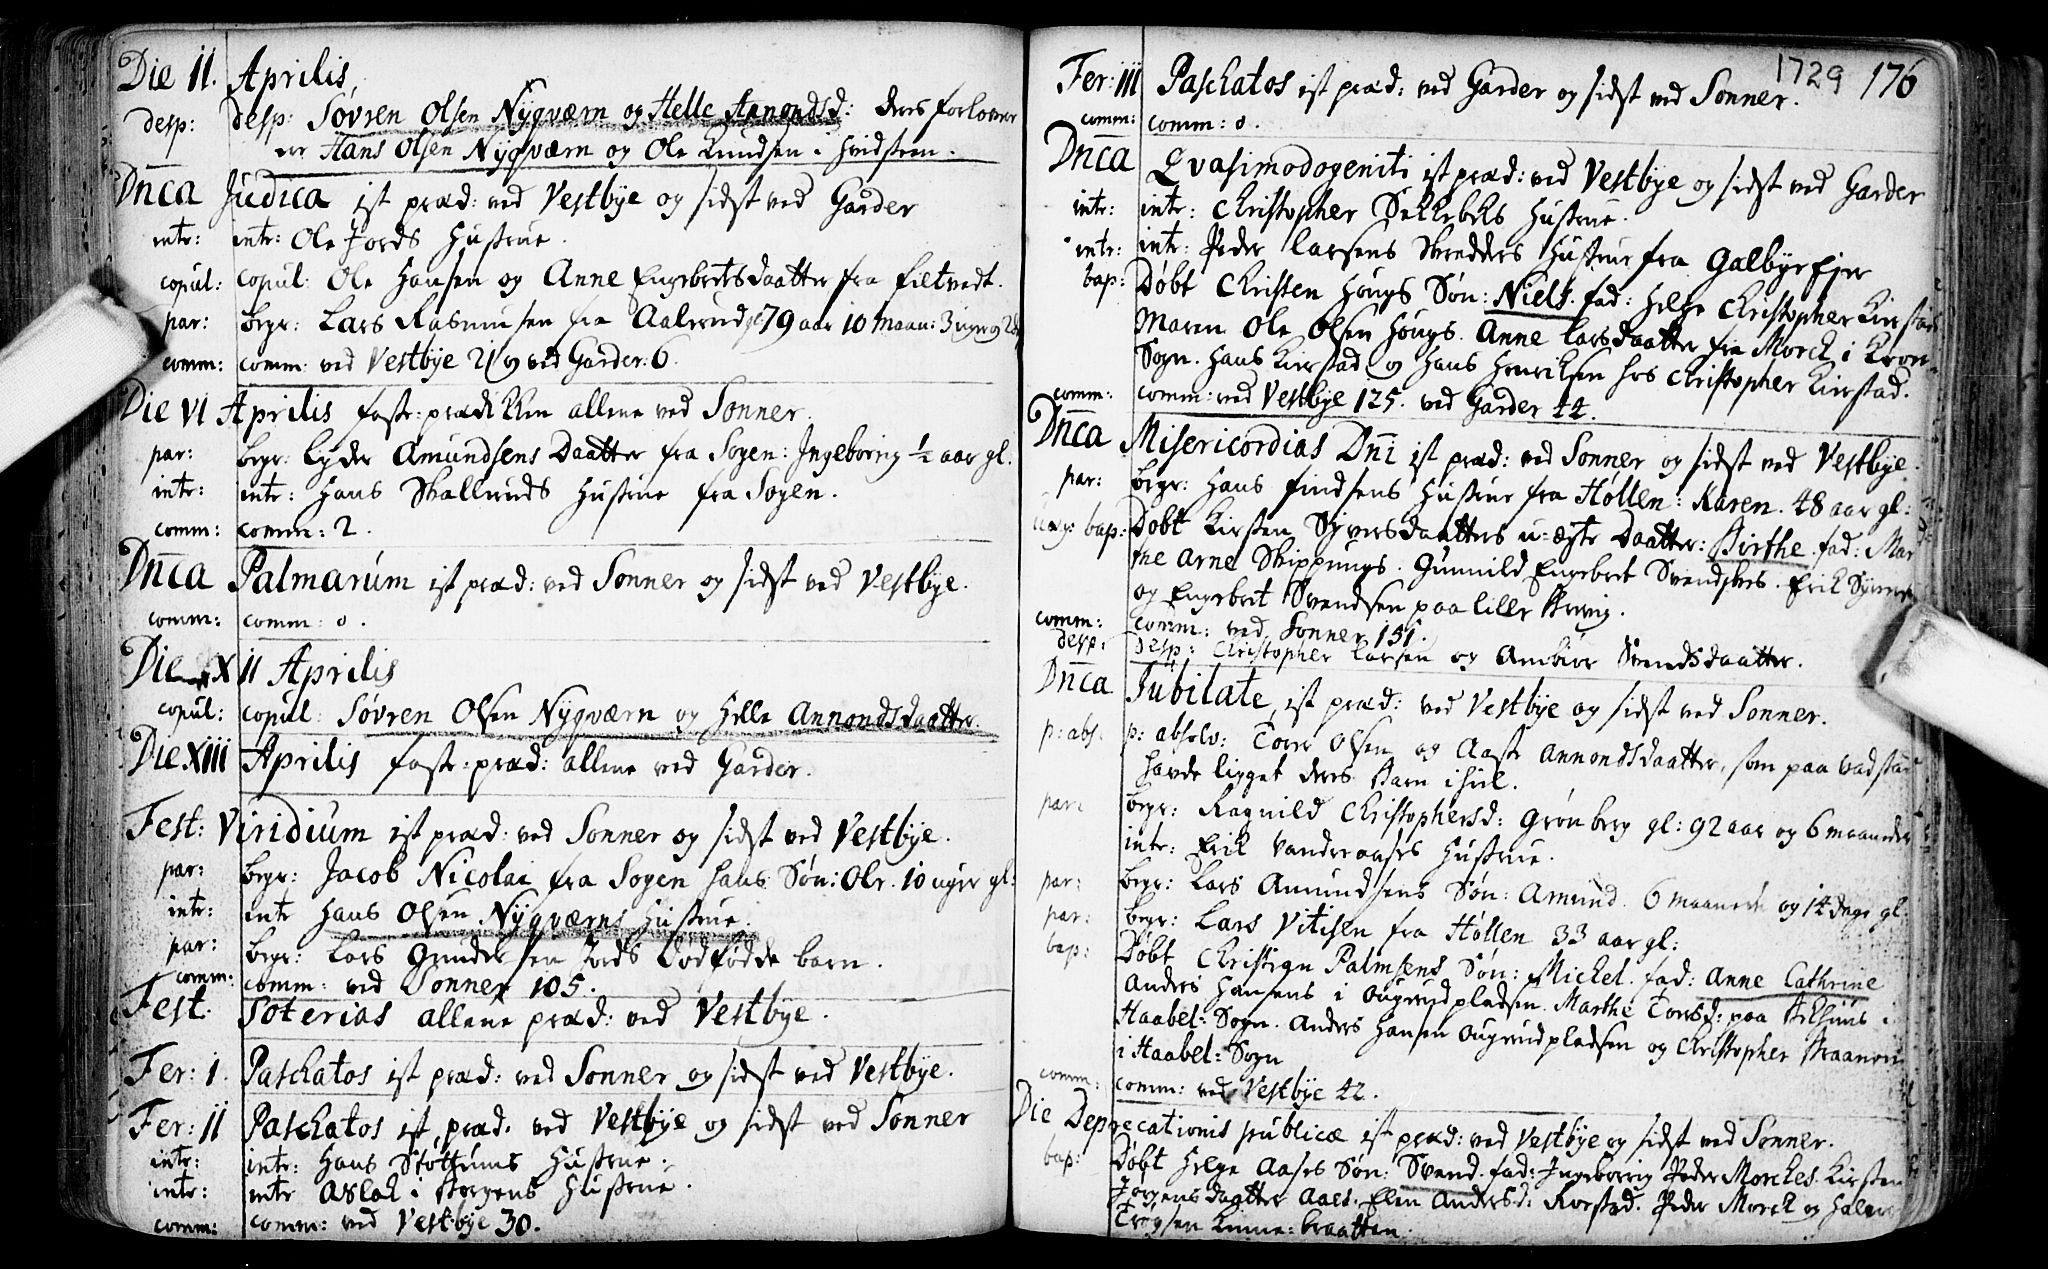 Die II. Aprilis
desp: desp: Søvren Olsen Nÿgværn og Helle Annondsd: deres forlover
er Hans Olsen Nÿgværn og Ole Knudsen i Hvidsteen.
Dn̄ca Judica ist præd: ved Vestbÿe og sidst ved Garder
intr: intr: Ole Jords Hustrue.
copul: copul: Ole Hansen og Anne Engebretsdaatter fra Filtvedt.
par: begr: Lars Rasmussen fra Aalerud gl 79 aar 10 maan: 3 uger og 2 d
comm: comm: ved Vestbÿe 21 og ved Garder: 6.
Die VI Aprilis faste-prædikken allene ved Sonner.
par: begr: Lyder Amundsens Daatter fra Sogen: Ingeborrig ½ aar gl.
intr: intr: Hans Skalleruds Hustrue fra Sogen.
comm: comm: 2.
Dn̄ca Palmarum ist præd: ved Sonner og sidst ved Vestbÿe.
comm: comm: 0.
Die XII Aprilis
copul: copul: Søvren Olsen Nÿgværn og Helle Annondsdaatter.
Die XIII Aprilis faste-præd: allene ved Garder.
Fest: Viridium ist præd: ved Sonner og sidst ved Vestbÿe.
par: begr: Jacob Nicolai fra Sogen hans Søn: Ole. 10 uger gl:
intr: intr Hans Olsen Nÿgværns Hustrue.
par: begr: Lars Gundersen Jords Dødfødde barn.
comm: comm: ved Sonner 105.
Fest: Soterias allene præd: ved Vestbÿe.
Fer: I. Paschatos ist præd: ved Sonner og sidst ved Vestbÿe.
Fer: II Paschatos ist præd. ved Vestbÿe og sidst ved Sonner
intr: intr: Hans Støttums Hustrue.
intr: intr Aslak i Hustrue.
comm: comm: ved Vestbÿe 30.
1729 176
Fer: III Paschatos ist præd: ved Garder og sidst ved Sonner.
comm: comm: 0.
Dn̄ca Qvasimodogeniti ist præd: ved Vestbÿe og sidst ved Garder
intr: intr: Christopher Sekkebeks Hustrue.
intr: intr: Peder Larsens Skredders Hustrue fra Galbye
bap: Døbt Christen Hougs Søn: Niels. fad: Helge Christopher Kirstad
Maren Ole Olsen Hougs. Anne Larsdaatter fra Morck i Kroer
Sogn. Hans Kirstad og Hans Henriksen hos Christopher Kirstad.
comm: comm: ved Vestbÿe 125. ved Garder 44.
Dn̄ca Misericordias Dn̄i ist præd: ved Sonner og sidst ved Vestbÿe.
par: begr: Hans Findsens Hustrue fra Høllen: Karen. 48 aar gl:
bap: Døbt Kirsten Syversdaatters u-ægte Daatter: Birthe. fad: Mar
the Arne Skippings. Gunnild Engebret Svendsens. Erik Syvers
og Engebret Svendsen paa lille
comm: comm: ved Sonner 151.
desp: desp: Christopher Larsen og Ambiør Svendsdaatter.
Dn̄ca Jubilate, ist præd: ved Vestbÿe og sidst ved Sonner.
p: abs: p: absolv: Tore Olsen og Aaste Annondsdaatter, som paa Vadstad
havde ligget deres Barn ihiel.
par: begr: Ragnild Christophersd: Grønberg gl: 92 aar og 6 maaneder
intr: Erik Vanderaases Hustrue.
par: begr: Lars Amundsens Søn: Amund. 6 maaneder og 14 dage gl:
par: begr: Lars Vitesen fra Høllen 33 aar gl:
bap: Døbt Christian Palmsens Søn: Michel. fad: Anne Cathrine
Anders Hansens i Ougerudpladsen. Marthe Torsd: paa i
Haabel: Sogn. Anders Hansen Ougerudpladsen og Christopher
i Haabel: Sogn
comm: comm: ved Vestbÿe 42.
Die Deprecationis publicæ ist præd: ved Vestbÿe og sidst ved Sonner.
bap: Døbt Helge Aases Søn: Svend. fad: Ingeborrig Peder Morckes. Kirsten
Jørgensdaatter Aaes. Elen Andersd: Rorstad. Peder Morck og Halvor